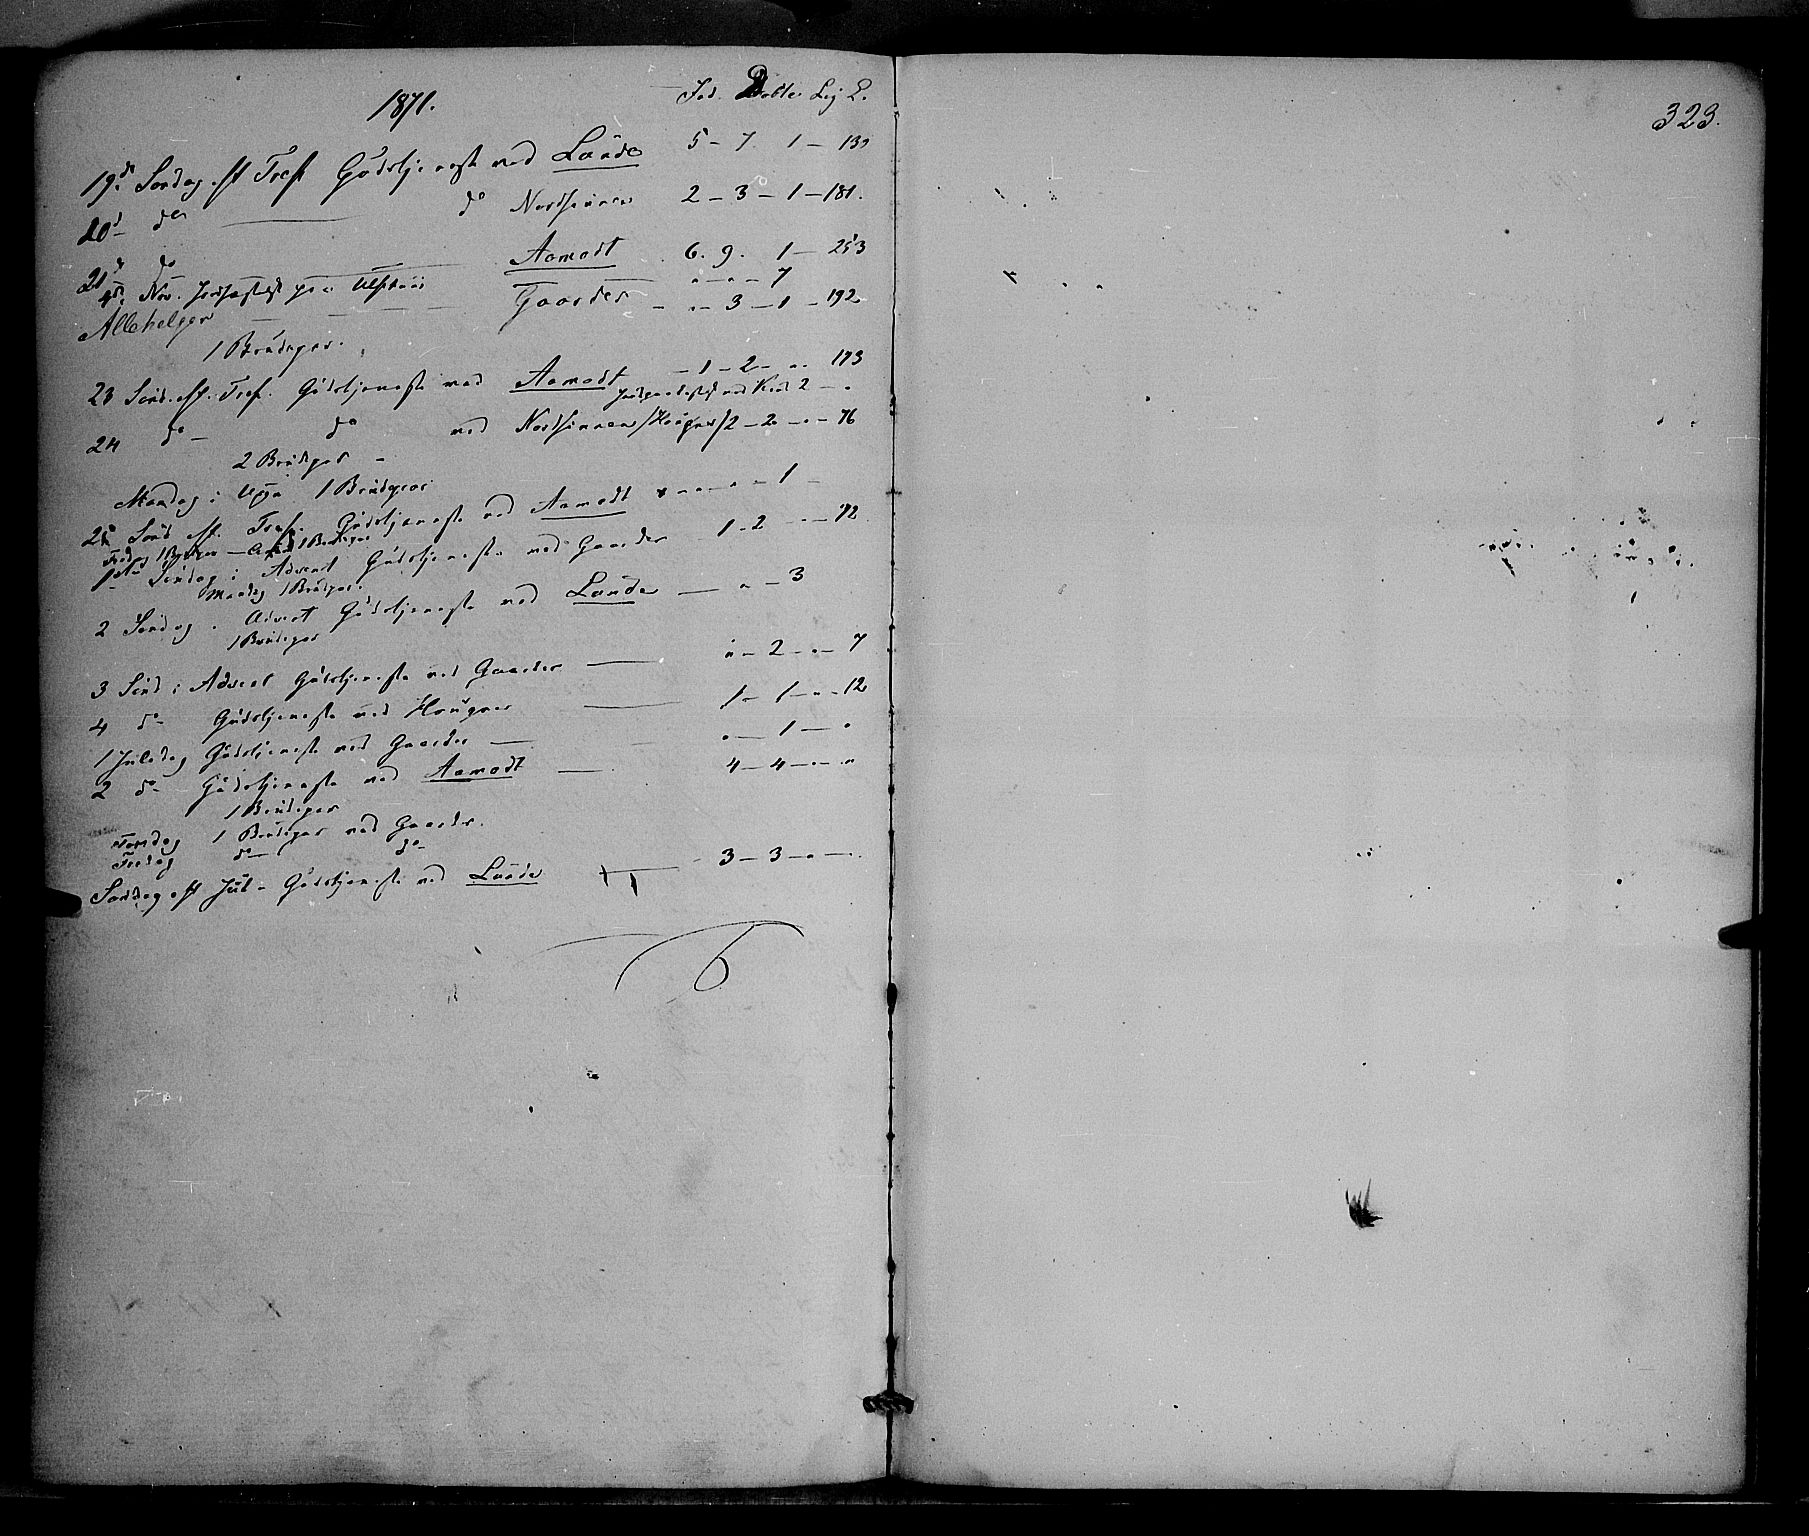 1871.
Fød. Døbte Lig
19de Søndag eft Tref Gudstjeneste ved Lande 5 – 7 1 – 130
20d do do Nordsinnen 2 – 3 – 1 – 181.
21d do Aamodt 6. 9. 1 – 253
4de Nov. – 7
Allehelgen Gaarder – 3 – 1 – 192
1 Brudepar.
23 Sønd. eft. Tref. Gudstjeneste ved Aamodt – 1 – 2 – 173
24 do do ved Nordsinnen /Haugner/ 2 – 2 – 76
2 Brudepar
Mandag i Uge 1 Brudepar
25 Sønd eft. Tref. Gudstjeneste ved Aamodt – 1 –
Søndag i Advent Gudstjeneste ved Gaarder 1 – 2 – 72
Mandag 1 Brudepar.
2 Søndag i Advent Gudstjeneste ved Lande – 3
1 Brudepar
3 Sønd i Advent Gudstjeneste ved Gaarder – 2 – 7
4 do Gudstjeneste ved Haugner 1 – 1 – 12
1 Juledag Gudstjeneste ved Gaarder – 1 –
2 do Gudstjeneste ved Aamodt 4 – 4 –
1 Brudepar
Torsdag 1 Brudepar ved Gaarder.
Fredag do do
Søndag eft Jul – Gudstjeneste ved Lande 3 – 3 –
323.